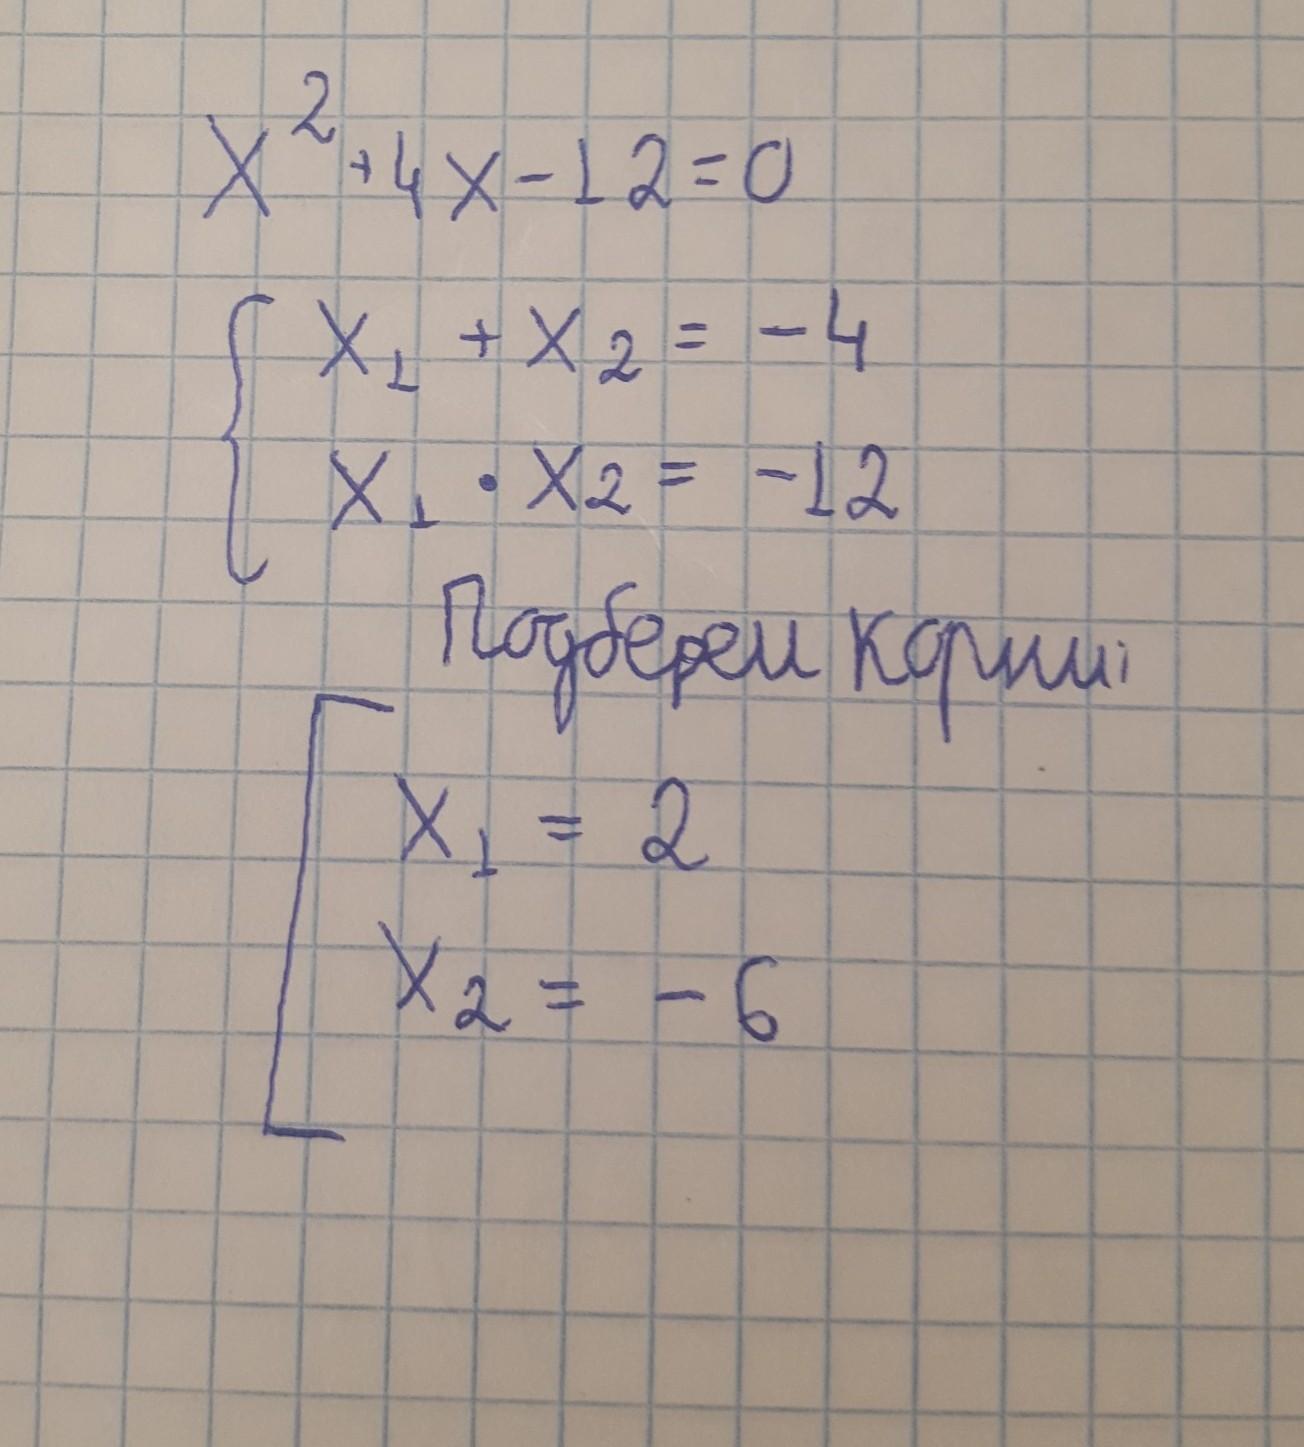 x² + 4x - 12 = 0
x₁ + x₂ = -4
x₁ · x₂ = -12
Подберем корни:
x₁ = 2
x₂ = -6